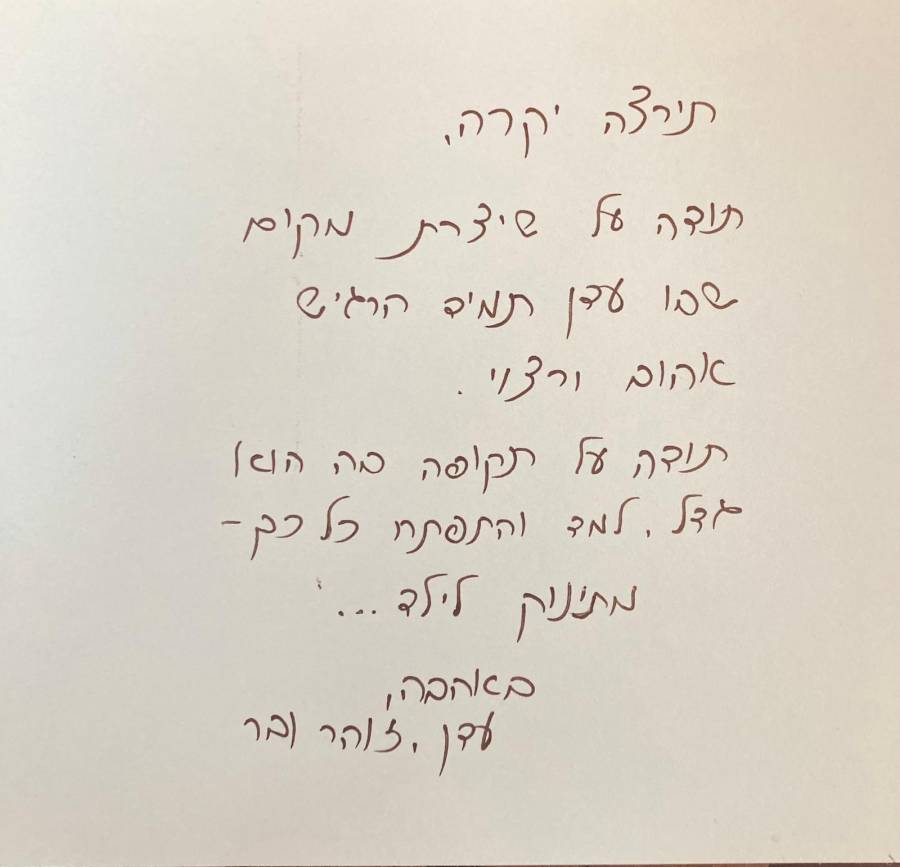 תירצה יקרה,
תודה על שיצרת מקום
שבו עדן תמיד הרגיש
אהוב ורצוי.
תודה על תקופה בה הוא
גדל, למד והתפתח כל כך -
מתינוק לילד...
באהבה,
עדן, זוהר ובר